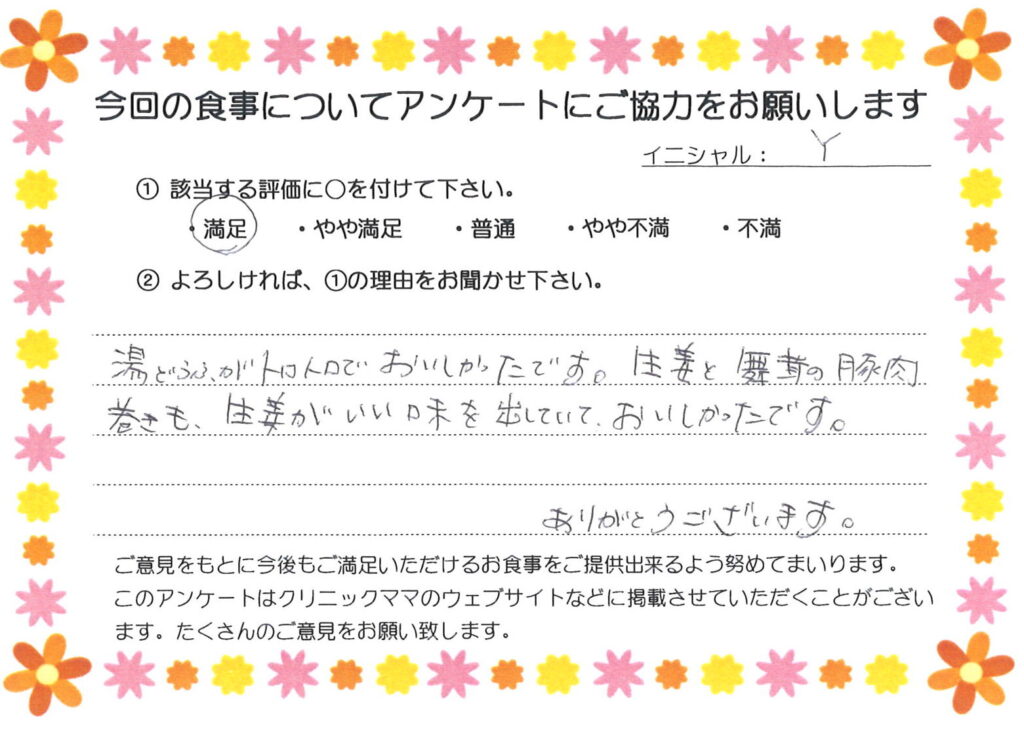 今回の食事についてアンケートにご協力をお願いします
イニシャル： Y
① 該当する評価に○を付けて下さい。
・満足 ・やや満足 ・普通 ・やや不満 ・不満
② よろしければ、①の理由をお聞かせ下さい。
湯どうふ、がトロトロで おいしかったです。生姜と舞茸の豚肉
巻きも、生姜がいい味を出していて、おいしかったです。
ありがとうございます。
ご意見をもとに今後もご満足いただけるお食事をご提供出来るよう努めてまいります。
このアンケートはクリニックママのウェブサイトなどに掲載させていただくことがござい
ます。たくさんのご意見をお願い致します。